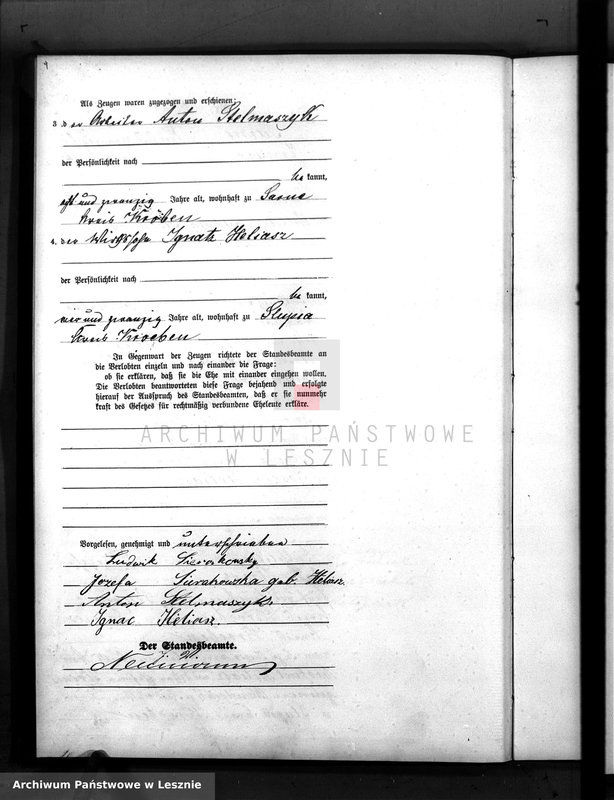 Als Zeugen waren zugezogen und erschienen:
3. der Arbeiter Anton Stelmaszyk
der Persönlichkeit nach
be kannt,
acht und zwanzig Jahre alt, wohnhaft zu Sarne
Kreis Kröben
4. der Wirthssohn Ignatz Heliasz
der Persönlichkeit nach
be kannt,
vier und zwanzig Jahre alt, wohnhaft zu Slupia
Kreis Kroeben
In Gegenwart der Zeugen richtete der Standesbeamte an
die Verlobten einzeln und nach einander die Frage:
ob sie erklären, daß sie die Ehe mit einander eingehen wollen.
Die Verlobten beantworteten diese Frage bejahend und erfolgte
hierauf der Ausspruch des Standesbeamten, daß er sie nunmehr
kraft des Gesetzes für rechtmäßig verbundene Eheleute erkläre.
ARCHIWUM PAŃSTWOWE
W LESZNIE
Vorgelesen, genehmigt und unterschrieben
Ludwik
Józefa Sierakowska geb. Heliasz
Anton Stelmaszyk
Ignac Heliasz
Der Standesbeamte.
Archiwum Państwowe w Lesznie